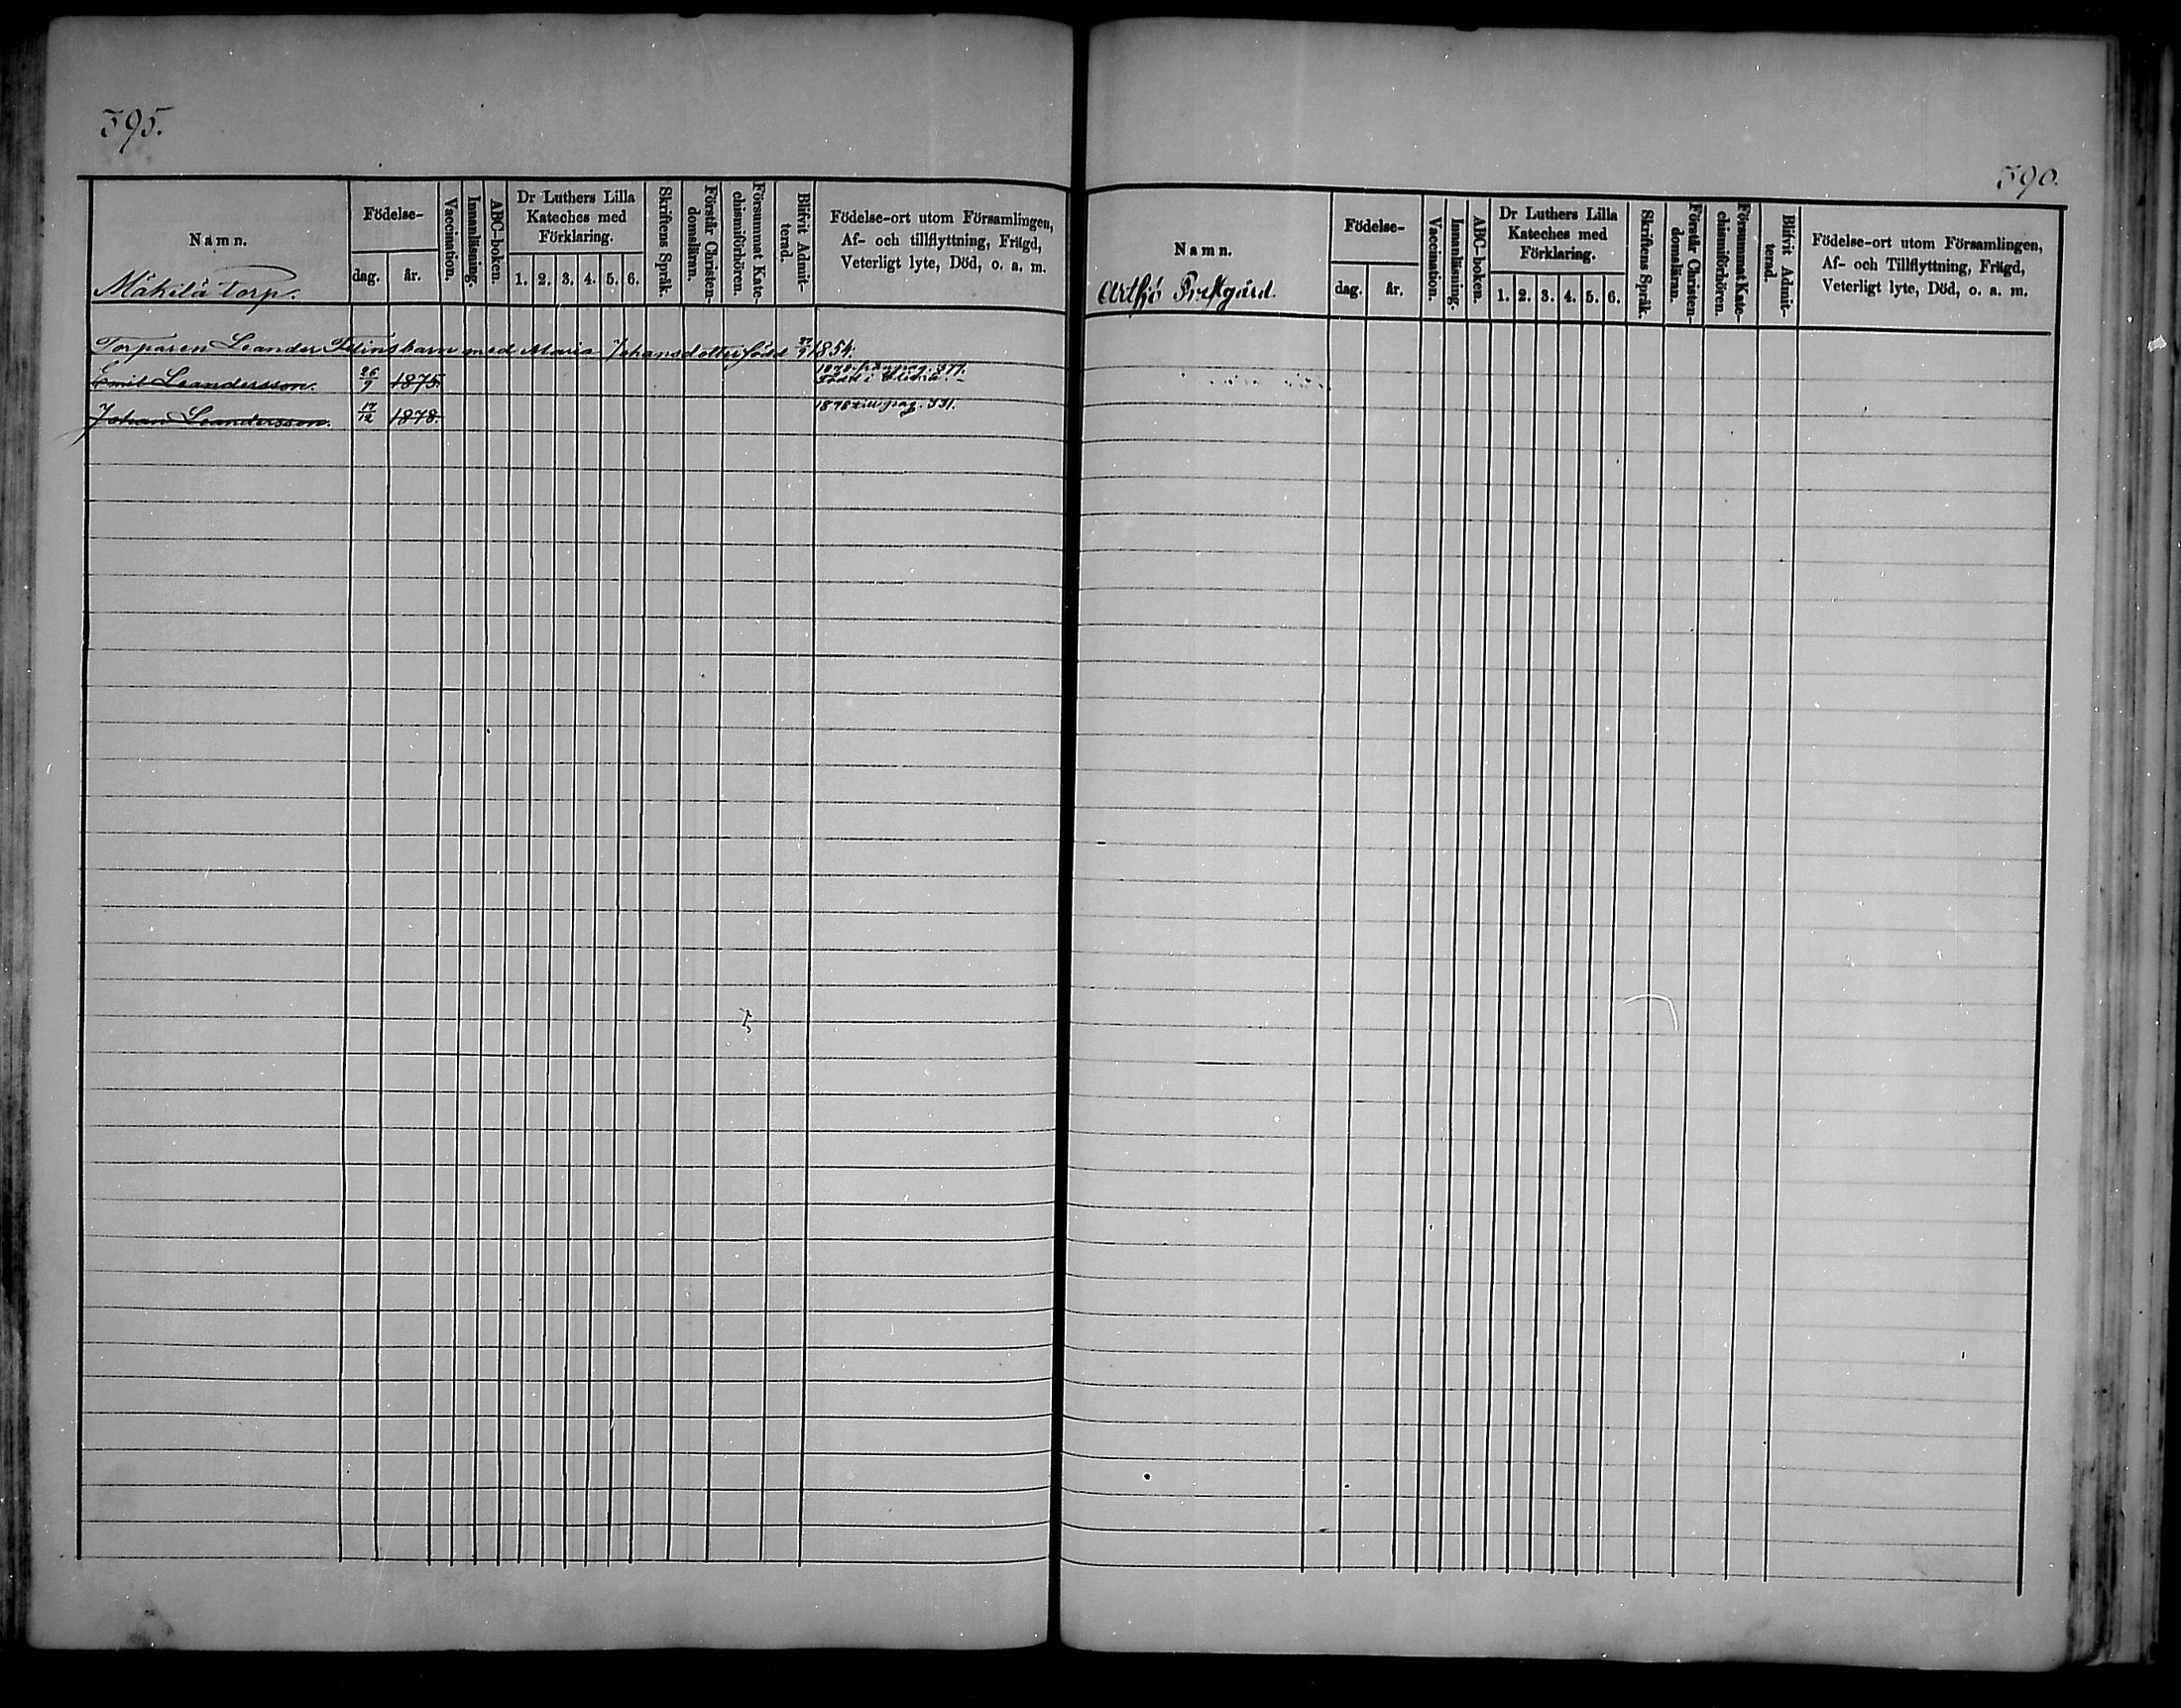 395.
Namn.
Mäkilä torp.
Födelse-
dag.
år.
Vaccination.
Innanläsning.
ABC-boken.
Dr Luthers Lilla
Kateches med
Förklaring.
1. 2. 3. 4. 5. 6.
Skriftens Språk.
Förstår Christen-
domsläran.
Försummat Kate-
chismiförhören.
Blifvit Admit-
terad.
Födelse-ort utom Församlingen,
Af- och tillflyttning, Frägd,
Veterligt lyte, Död, o. a. m.
Torparen Leander barn med Maria Johansdotter född 1854.
Emil Leandersson. 26/9 1875. 1878 från pag. 377.
Född i
Johan Leandersson. 17/12 1878. 1878 till pag. 331.
390.
Namn.
Artsjö Prestgård.
Födelse-
dag.
år.
Vaccination.
Innanläsning.
ABC-boken.
Dr Luthers Lilla
Kateches med
Förklaring.
1. 2. 3. 4. 5. 6.
Skriftens Språk.
Förstår Christen-
domsläran.
Försummat Kate-
chismiförhören.
Blifvit Admit-
terad.
Födelse-ort utom Församlingen,
Af- och Tillflyttning, Frägd,
Veterligt lyte, Död, o. a. m.